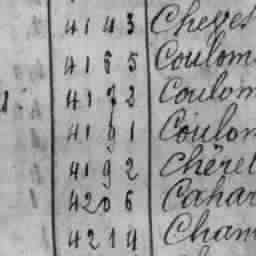 4143 Cheves
4165 Coulom
4172 Coulom
4191 Coulom
4192 Chéret
4206 Cahar
4214 Cham